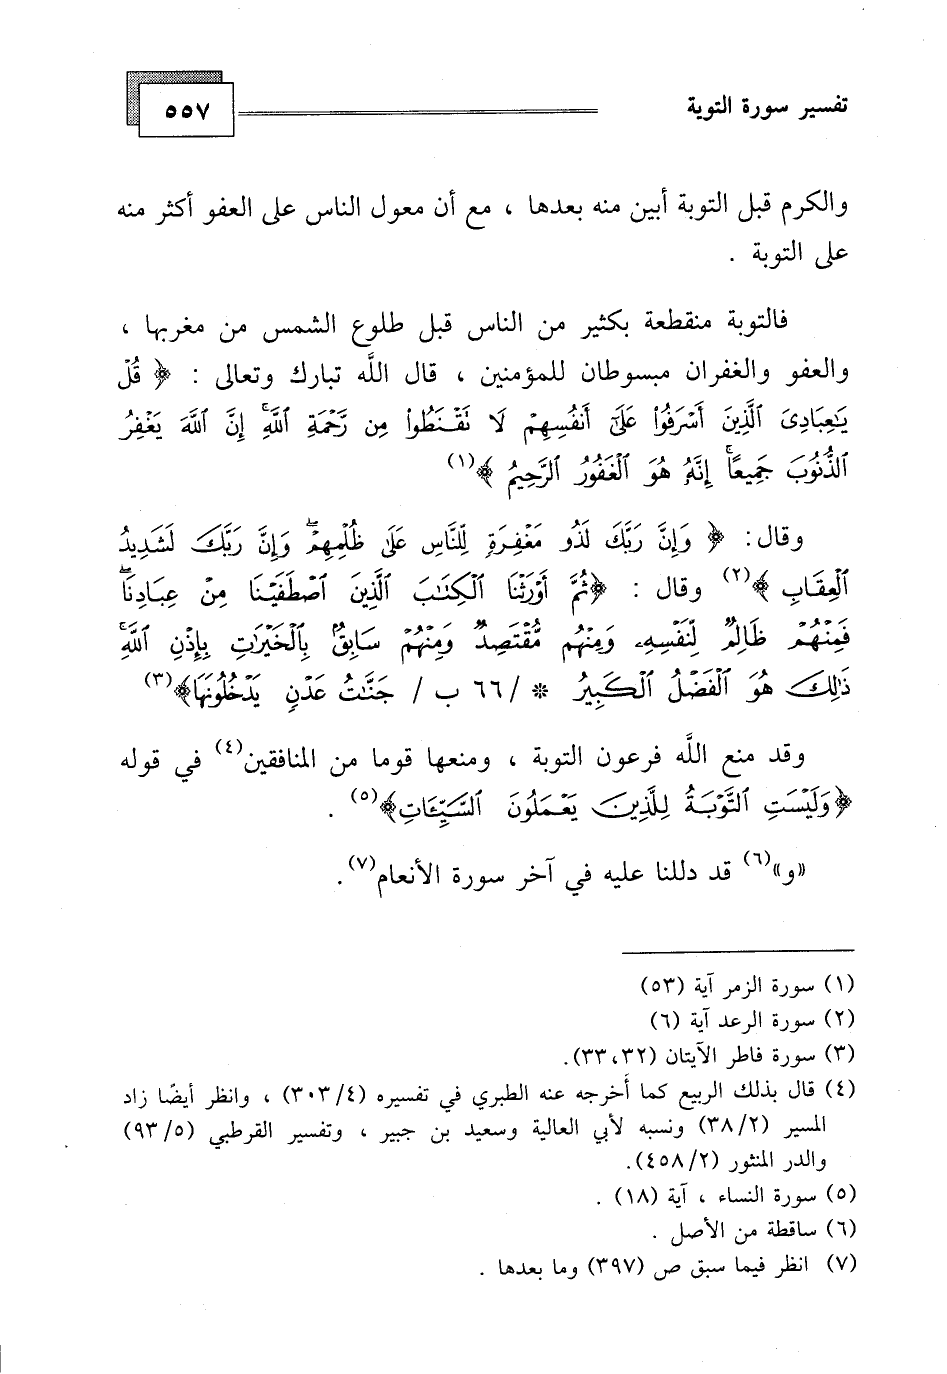 تفسير سورة التوبة
٥٥٧
والكرم قبل التوبة أبين منه بعدها ، مع أن معول الناس على العفو أكثر منه
على التوبة .
فالتوبة منقطعة بكثير من الناس قبل طلوع الشمس من مغربها ،
والعفو والغفران مبسوطان للمؤمنين ، قال الله تبارك وتعالى : ﴿ قُلْ
يَٰعِبَادِىَ ٱلَّذِينَ أَسْرَفُوا۟ عَلَىٰٓ أَنفُسِهِمْ لَا تَقْنَطُوا۟ مِن رَّحْمَةِ ٱللَّهِ ۚ إِنَّ ٱللَّهَ يَغْفِرُ
ٱلذُّنُوبَ جَمِيعًا ۚ إِنَّهُۥ هُوَ ٱلْغَفُورُ ٱلرَّحِيمُ ﴾(١)
وقال: ﴿ وَإِنَّ رَبَّكَ لَذُو مَغْفِرَةٍ لِّلنَّاسِ عَلَىٰ ظُلْمِهِمْ ۖ وَإِنَّ رَبَّكَ لَشَدِيدُ
ٱلْعِقَابِ ﴾(٢) وقال : ﴿ثُمَّ أَوْرَثْنَا ٱلْكِتَٰبَ ٱلَّذِينَ ٱصْطَفَيْنَا مِنْ عِبَادِنَا ۖ
فَمِنْهُمْ ظَالِمٌ لِّنَفْسِهِۦ وَمِنْهُم مُّقْتَصِدٌ وَمِنْهُمْ سَابِقٌۢ بِٱلْخَيْرَٰتِ بِإِذْنِ ٱللَّهِ ۚ
ذَٰلِكَ هُوَ ٱلْفَضْلُ ٱلْكَبِيرُ * /٦٦ ب/ جَنَّٰتُ عَدْنٍ يَدْخُلُونَهَا﴾(٣)
وقد منع الله فرعون التوبة ، ومنعها قوما من المنافقين(٤) في قوله
﴿وَلَيْسَتِ ٱلتَّوْبَةُ لِلَّذِينَ يَعْمَلُونَ ٱلسَّيِّـَٔاتِ﴾(٥) .
«و»(٦) قد دللنا عليه في آخر سورة الأنعام(٧).
(١) سورة الزمر آية (٥٣)
(٢) سورة الرعد آية (٦)
(٣) سورة فاطر الآيتان (٣٢، ٣٣).
(٤) قال بذلك الربيع كما أخرجه عنه الطبري في تفسيره (٣٠٣/٤) ، وانظر أيضًا زاد
المسير (٣٨/٢) ونسبه لأبي العالية وسعيد بن جبير ، وتفسير القرطبي (٩٣/٥)
والدر المنثور (٤٥٨/٢).
(٥) سورة النساء ، آية (١٨) .
(٦) ساقطة من الأصل .
(٧) انظر فيما سبق ص (٣٩٧) وما بعدها .